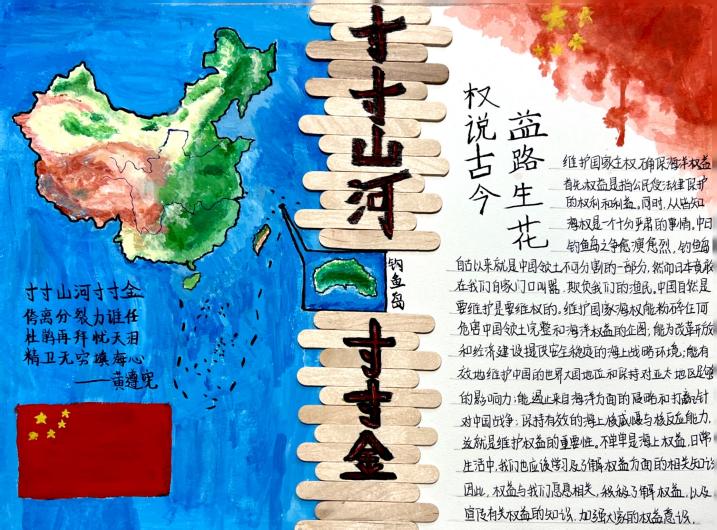 寸寸山河
寸寸金
寸寸山河寸寸金
侉离分裂力谁任
杜鹃再拜忧天泪
精卫无穷填海心
——黄遵宪
钓鱼岛
权说古今
益路生花
维护国家主权、确保海洋权益
首先权益是指公民受法律保护
的权利和利益,同时,从告知
海权是一个十分严肃的事情,中日
钓鱼岛之争愈演愈烈,钓鱼岛
自古以来就是中国领土不可分割的一部分,然而日本竟敢
在我们自家门口叫嚣,欺负我们的渔民,中国自然是
要维护是要维权的。维护国家海权能粉碎任何
危害中国领土完整和海洋权益的企图;能为改革开放
和经济建设提供安全稳定的海上战略环境;能有
效地维护中国的世界大国地位和保持对亚太地区足够
的影响力;能遏止来自海洋方面的侵略和打赢针
对中国战争;保持有效的海上核威慑与核反应能力,
这就是维护权益的重要性。不单单是海上权益,日常
生活中,我们也应该学习及了解权益方面的相关知识
因此,权益与我们息息相关,积极了解权益,以及
宣传有关权益的知识,加强大家的权益意识。